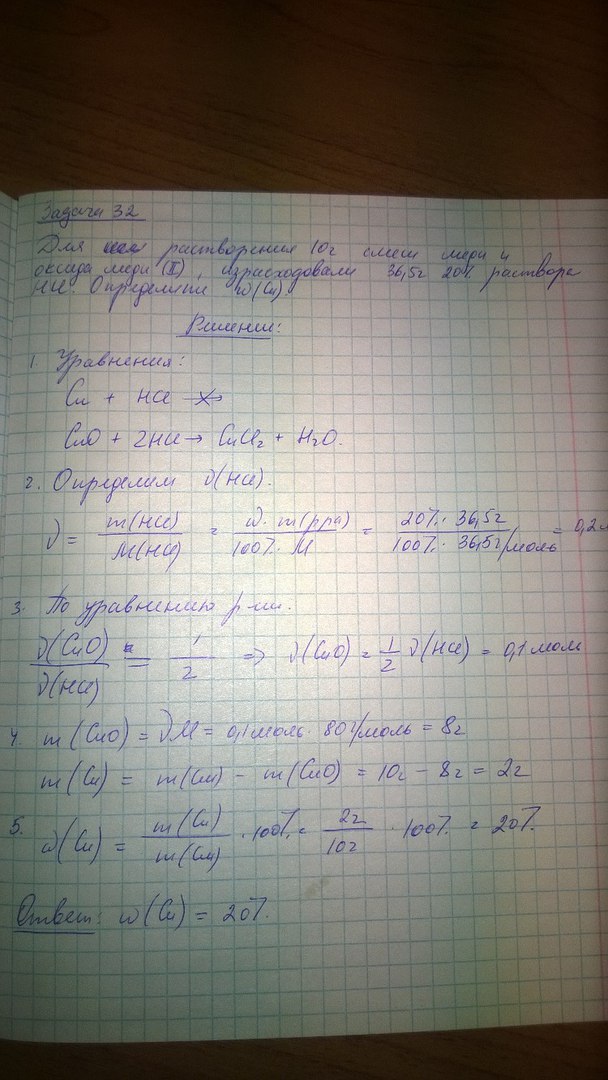 Задача 32
Для растворения 10г смеси меди и
оксида меди (II), израсходовали 36,5г 20% раствора
HCl. Определите ω(Cu).
Решение:
1. Уравнения:
Cu + HCl ↛
CuO + 2HCl → CuCl₂ + H₂O.
2. Определим ν(HCl).
ν = m(HCl)/M(HCl) = ω · m(р-ра)/100% · M = 20% · 36,5г/100% · 36,5г/моль = 0,2
3. По уравнению р-ии.
ν(CuO)/ν(HCl) = 1/2 => ν(CuO) = 1/2 ν(HCl) = 0,1 моль
4. m(CuO) = νM = 0,1 моль · 80г/моль = 8г
m(Cu) = m(см) - m(CuO) = 10г - 8г = 2г
5. ω(Cu) = m(Cu)/m(см) · 100% = 2г/10г · 100% = 20%.
Ответ: ω(Cu) = 20%.